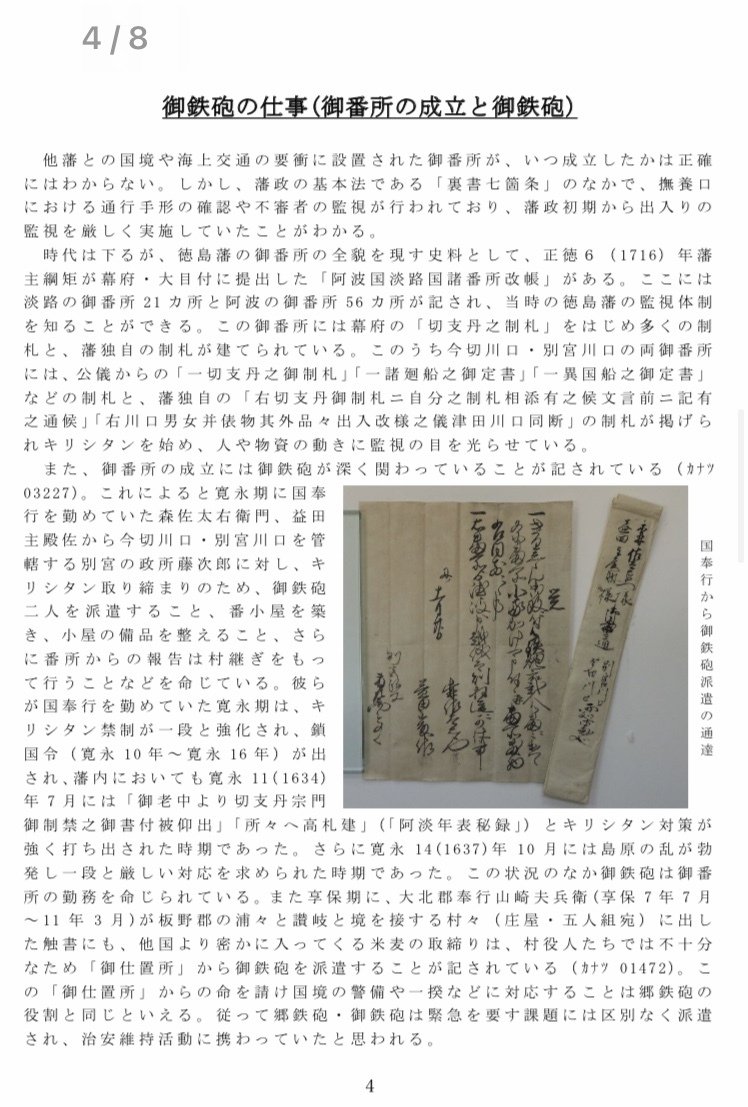 4/8
御鉄砲の仕事(御番所の成立と御鉄砲)
他藩との国境や海上交通の要衝に設置された御番所が、いつ成立したかは正確
にはわからない。しかし、藩政の基本法である「裏書七箇条」のなかで、撫養口
における通行手形の確認や不審者の監視が行われており、藩政初期から出入りの
監視を厳しく実施していたことがわかる。
時代は下るが、徳島藩の御番所の全貌を現す史料として、正徳6(1716)年藩
主綱矩が幕府・大目付に提出した「阿波国淡路国諸番所改帳」がある。ここには
淡路の御番所21カ所と阿波の御番所56カ所が記され、当時の徳島藩の監視体制
を知ることができる。この御番所には幕府の「切支丹之制札」をはじめ多くの制
札と、藩独自の制札が建てられている。このうち今切川口・別宮川口の両御番所
には、公儀からの「一切支丹之御制札」「一諸廻船之御定書」「一異国船之御定書」
などの制札と、藩独自の「右切支丹御制札ニ自分之制札相添有之候文言前ニ記有
之通候」「右川口男女并俵物其外品々出入改様之儀津田川口同断」の制札が掲げら
れキリシタンを始め、人や物資の動きに監視の目を光らせている。
また、御番所の成立には御鉄砲が深く関わっていることが記されている(ｶﾅﾂ
03227)。これによると寛永期に国奉
行を勤めていた森佐太右衛門、益田
主殿佐から今切川口・別宮川口を管
轄する別宮の政所藤次郎に対し、キ
リシタン取り締まりのため、御鉄砲
二人を派遣すること、番小屋を築
き、小屋の備品を整えること、さら
に番所からの報告は村継ぎをもっ
て行うことなどを命じている。彼ら
が国奉行を勤めていた寛永期は、キ
リシタン禁制が一段と強化され、鎖
国令(寛永10年～寛永16年)が出
され、藩内においても寛永11(1634)
年7月には「御老中より切支丹宗門
御制禁之御書付被仰出」「所々へ高札建」(「阿淡年表秘録」)とキリシタン対策が
強く打ち出された時期であった。さらに寛永14(1637)年10月には島原の乱が勃
発し一段と厳しい対応を求められた時期であった。この状況のなか御鉄砲は御番
所の勤務を命じられている。また享保期に、大北郡奉行山崎夫兵衛(享保7年7月
～11年3月)が板野郡の浦々と讃岐と境を接する村々(庄屋・五人組宛)に出し
た触書にも、他国より密かに入ってくる米麦の取締りは、村役人たちでは不十分
なため「御仕置所」から御鉄砲を派遣することが記されている(ｶﾅﾂ 01472)。こ
の「御仕置所」からの命を請け国境の警備や一揆などに対応することは郷鉄砲の
役割と同じといえる。従って郷鉄砲・御鉄砲は緊急を要す課題には区別なく派遣
され、治安維持活動に携わっていたと思われる。
国奉行から御鉄砲派遣の通達
4